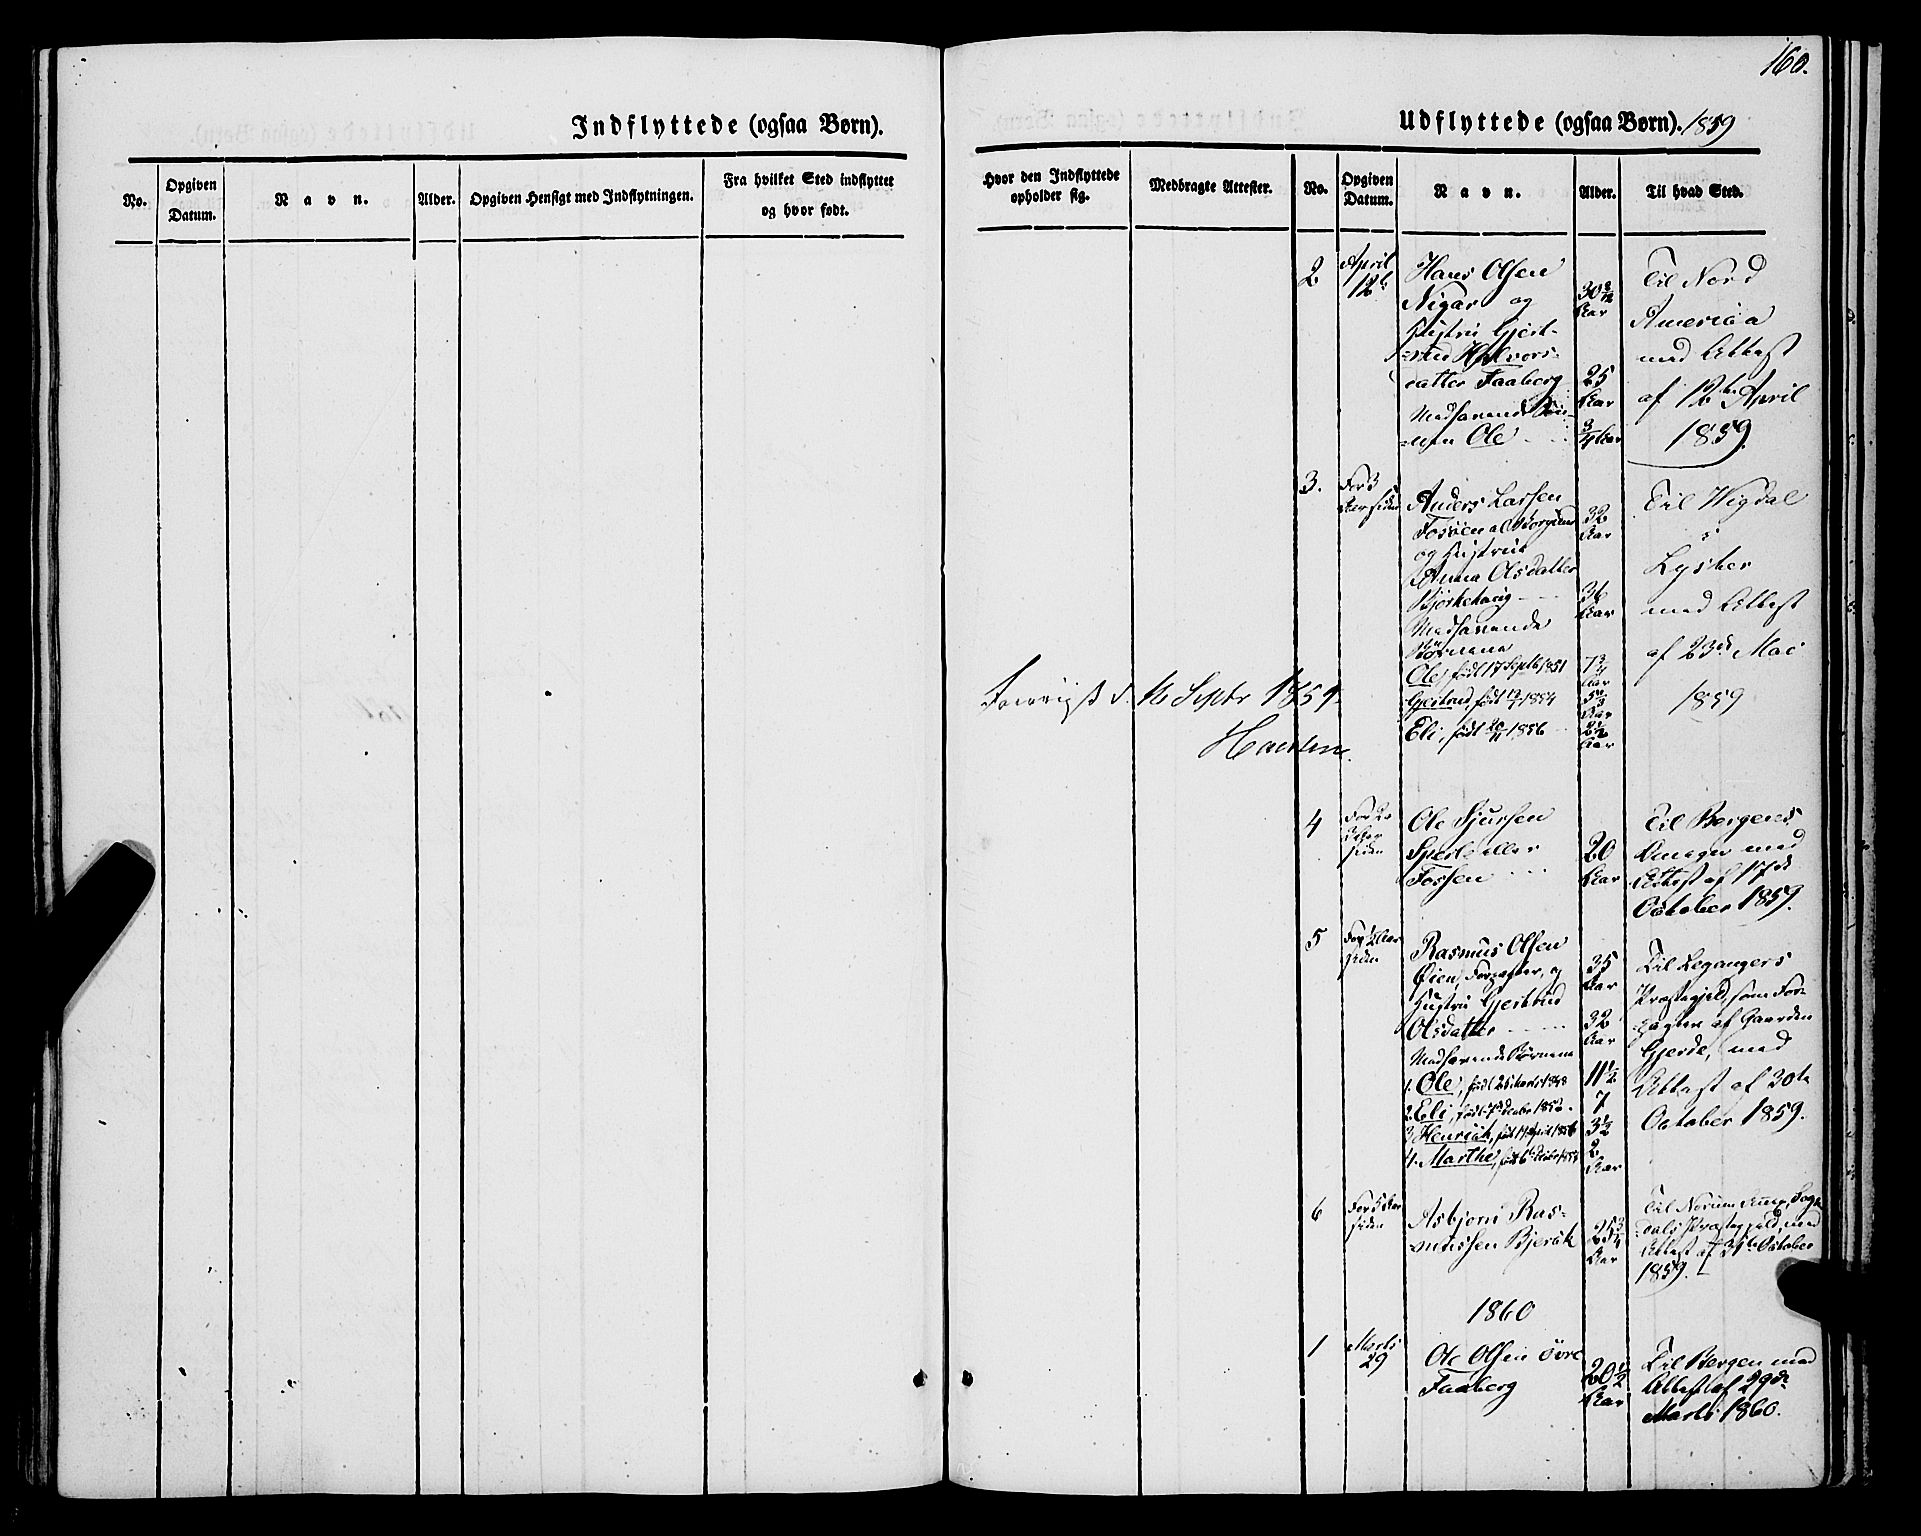 160.
Indflyttede (ogsaa Børn).
No.
Opgiven Datum.
Navn.
Alder.
Opgiven Hensigt med Indflytningen.
Fra hvilket Sted indflyttet og hvor født.
Udflyttede (ogsaa Børn). 1859
Hvor den Indflyttede opholder sig.
Medbragte Attester.
No.
Opgiven Datum.
Navn.
Alder.
Til hvad Sted.
2
April
12te
Hans Olsen
Nigar og
Hustru Gjert-
rud Halvors-
datter Faaberg
Medfarende
Ole
30 8/12
Aar
25
Aar
3/4 Aar
Til Nord
America
med Attest
af 12te April
1859.
3.
For 3
Aar siden
Anders Larsen
og Hustrue
Anna Olsdatter
Bjørkehaug
Medfarende
Børnene
Ole, født 17 Septb 1851
Gjertrud, født 1854
Eli, født 20/11 1856
32
Aar
36
Aar
7 3/4
Aar
Aar
2 1/2
Aar
Til Vigdal
i
Lyster
med Attest
af 23de Mai
1859
16 Septbr 1859
4
siden
Ole Sjursen
Sperle eller
Fossen
20
Aar
Til Bergens
Omegn med
Attest af 17de
October 1859.
5
For 1/2 Aar
siden
Rasmus Olsen
Øien, Forpagter, og
Hustru Gjertrud
Olsdatter
Medfarende Børnene
1. Ole, født 25 Marts 1848
2. Eli, født 7de Decbr 1852.
3. Henrick, født 17 April 1856
4. Marthe, født 6te
35
Aar
32
Aar
11 1/2
7
3 1/2
2
Aar
Til Legangers
Præstegjeld, som For-
pagter af Gaarden
Gjerde, med
Attest af 30te
October 1859.
6
For 5 Aar
siden
Asbjørn Ras-
mussen Bjørk
25 3/4
Aar
Til Norum Annex, Sogn-
dals Præstegjeld, med
Attest af 31te October
1859.
1860
1
Marts
29
Ole Olsen øvre
Faaberg
20 1/2
Aar
Til Bergen med
Attest af 29de
Marts 1860.